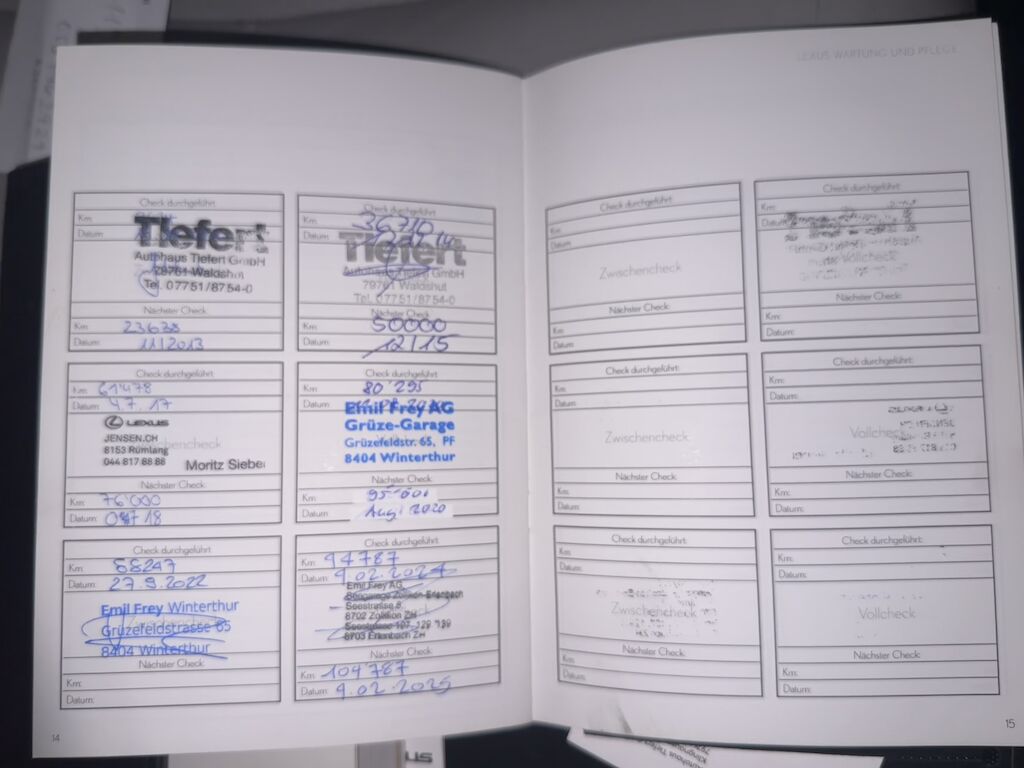 LEXUS WARTUNG UND PFLEGE
Check durchgeführt:
Km:
Datum:
Tiefert
Autohaus Tiefert GmbH
79761 Waldshut
Tel. 07751/8754-0
Nächster Check:
Km: 23638
Datum: 11/2013
Check durchgeführt:
Km: 36710
Datum:
Tiefert
Autohaus Tiefert GmbH
79761 Waldshut
Tel. 07751/8754-0
Nächster Check:
Km: 50000
Datum: 12/15
Check durchgeführt:
Km: 61'478
Datum: 4.7.17
LEXUS
JENSEN.CH
8153 Rümlang
044 817 88 88
Moritz Sieber
Nächster Check:
Km: 76'000
Datum: 07 18
Check durchgeführt:
80'295
Emil Frey AG
Grüze-Garage
Grüzefeldstr. 65, PF
8404 Winterthur
Nächster Check:
Km: 95'000
Datum: Aug. 2020
Check durchgeführt:
Km: 88247
Datum: 27.9.2022
Emil Frey Winterthur
Grüzefeldstrasse 65
8404 Winterthur
Nächster Check:
Km:
Datum:
Check durchgeführt:
Km: 94787
Datum: 9.02.2024
Emil Frey AG
Seegarage Zollikon-Erlenbach
Seestrasse 5
8702 Zollikon ZH
Seestrasse 107-129
8703 Erlenbach ZH
Nächster Check:
Km: 104787
Datum: 9.02.2025
14
Check durchgeführt:
Km:
Datum:
Zwischencheck
Nächster Check:
Km:
Datum:
Check durchgeführt:
Km:
Datum:
Vollcheck
Nächster Check:
Km:
Datum:
Check durchgeführt:
Km:
Datum:
Zwischencheck
Nächster Check:
Km:
Datum:
Check durchgeführt:
Km:
Datum:
Vollcheck
Nächster Check:
Km:
Datum:
Check durchgeführt:
Km:
Datum:
Zwischencheck
Nächster Check:
Km:
Datum:
Check durchgeführt:
Km:
Datum:
Vollcheck
Nächster Check:
Km:
Datum:
15